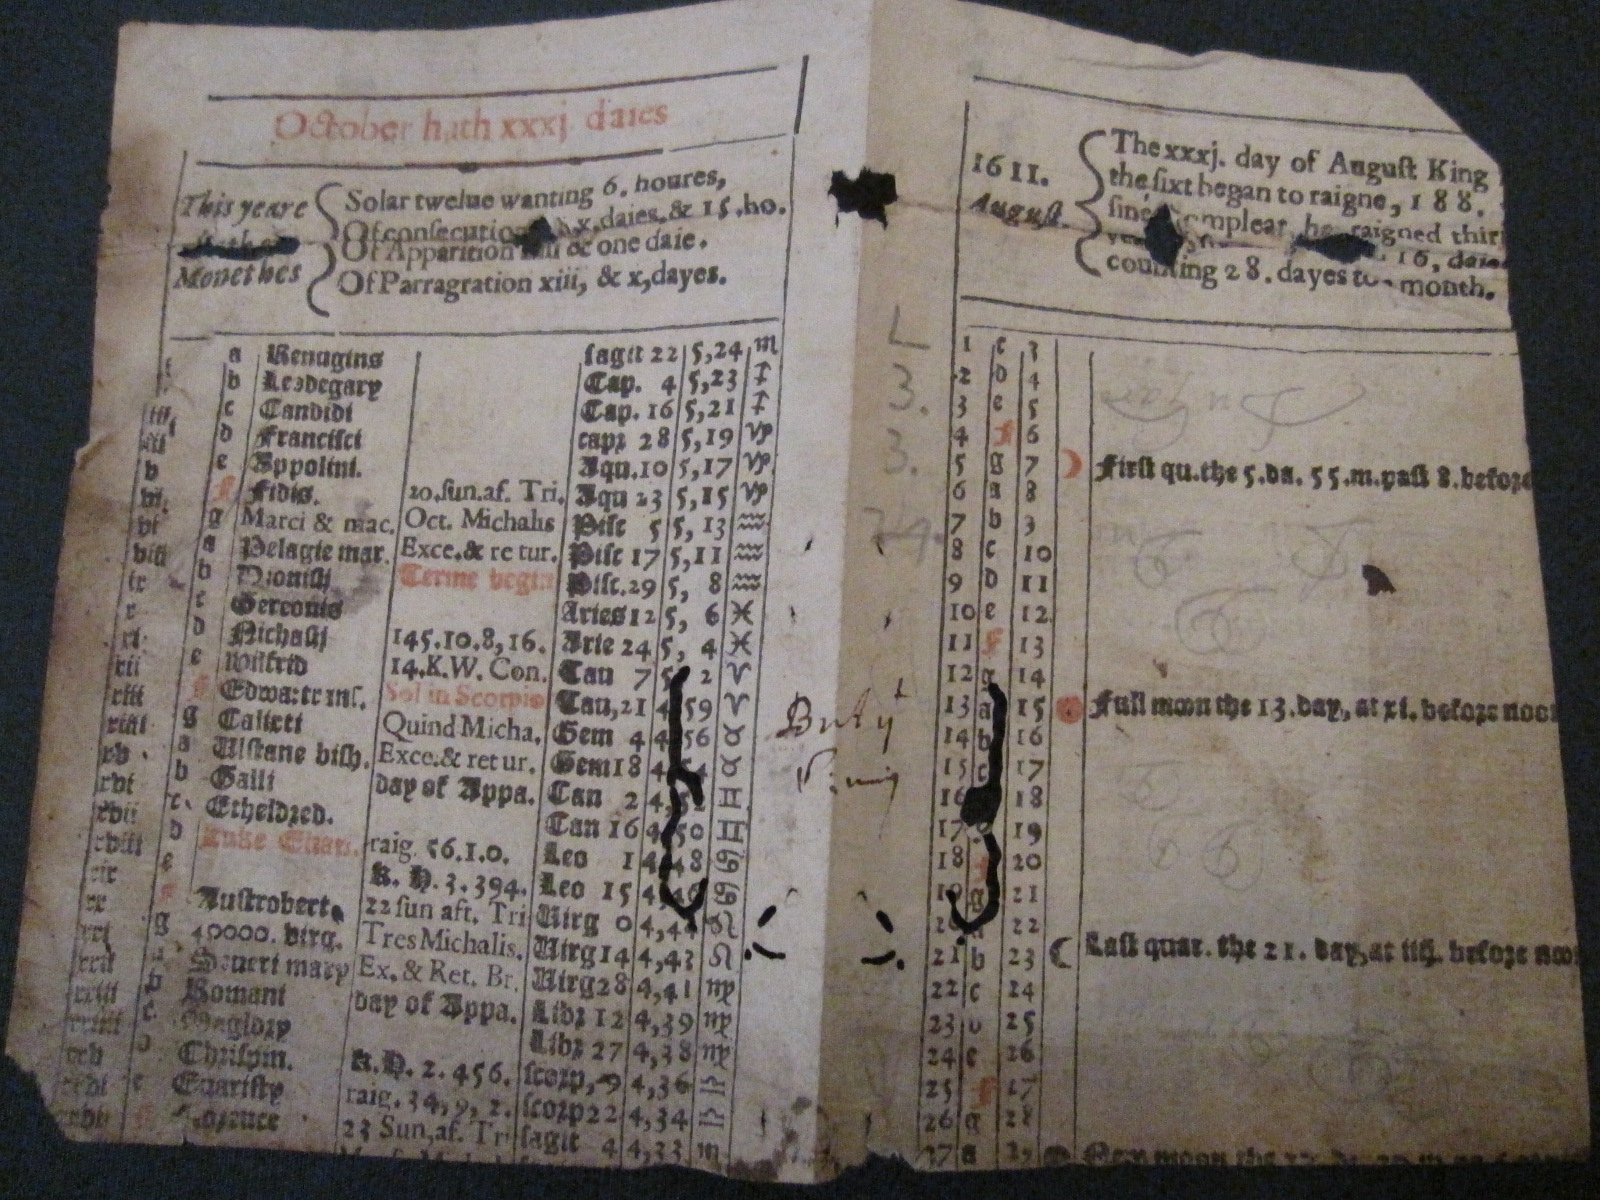 October hath xxxj daies
This yeare
Monethes
Solar twelue wanting 6. houres,
Of consecution x, daies, & 15, ho.
Of Apparition & one daie.
Of Parragration xiii, & x, dayes.
a Remigius sagit 22 5,24 ♏
b Leodegary Cap. 4 5,23 ♐
iii. c Candidi Cap. 16 5,21 ♐
iiii d Francisci capr 28 5,19 ♑
v e Appolini. Aqu. 10 5,17 ♑
vi. f Fidis. 20. sun. af. Tri. Aqu 23 5,15 ♑
g Marci & mac. Oct. Michalis Pisc 5 5, 13 ♒
viii a Pelagie mar. Exce. & retur. Pisc 17 5,11 ♒
ix b Dionisij Terme begin Pisc. 29 5, 8 ♒
x c Gereonis Aries 12 5, 6 ♓
xi. d Nichasij 145.10.8,16. Arie 24 5, 4 ♓
xii e Wilfrid 14. K.W. Con. Tau 7 5 2 ♈
xiii f Edwa: trans. Sol in Scorpio Tau, 21 4 59 ♈
xiiii g Calixti Quind Micha. Gem 4 4 56 ♉
xv a Ulstane bish. Exce. & retur. Gem 18 4 54 ♉
xvi b Galli day of Appa. Can 2 4,52 ♊
xvii c. Etheldred. Can 16 4 50 ♊
xviii d Luke Euan. raig. 56.1.0. Leo 1 4 48 ♋
xix e K. H. 3. 394. Leo 15 4,46 ♋
xx f Austrobert. 22 sun aft. Tri Uirg 0 4,44 ♌
xxi g 40000. virg. Tres Michalis. Uirg 14 4,43 ♌
xxii a Seueri mary Ex. & Ret. Br. Uirg 28 4,41 ♍
xxiii b Romani day of Appa. Libr 12 4,39 ♍
xxiiii c Maglory Libr 27 4,38 ♍
xxv d Chrispin. K. H. 2. 456. scorp, 9 4,36 ♎
xxvi e Euaristy raig. 34, 9, 2. scorp 22 4,34 ♎
xxvii 23 Sun, af. Tri sagit 4 4,33 ♏
L
3.
3.
1611.
August
The xxxj. day of August King
the sixt began to raigne, 188.
sine compleat, he raigned thir
16, daies
counting 28. dayes to month.
1 c 3
2 d 4
3 e 5
4 f 6
5 g 7 ☽ First qu. the 5. da. 55. m. past 8. before
6 a 8
7 b 3
8 c 10
9 d 11
10 e 12
11 f 13
12 g 14
13 a 15 Full moon the 13. day, at xi. before noon
14 b 16
15 c 17
16 18
17 19
18 f 20
19 g 21
20 a 22
21 b 23 ☾ Last quar. the 21. day, at iiij. before noon
22 c 24
23 d 25
24 e 26
25 f 27
26 g 28
27 a New moon the